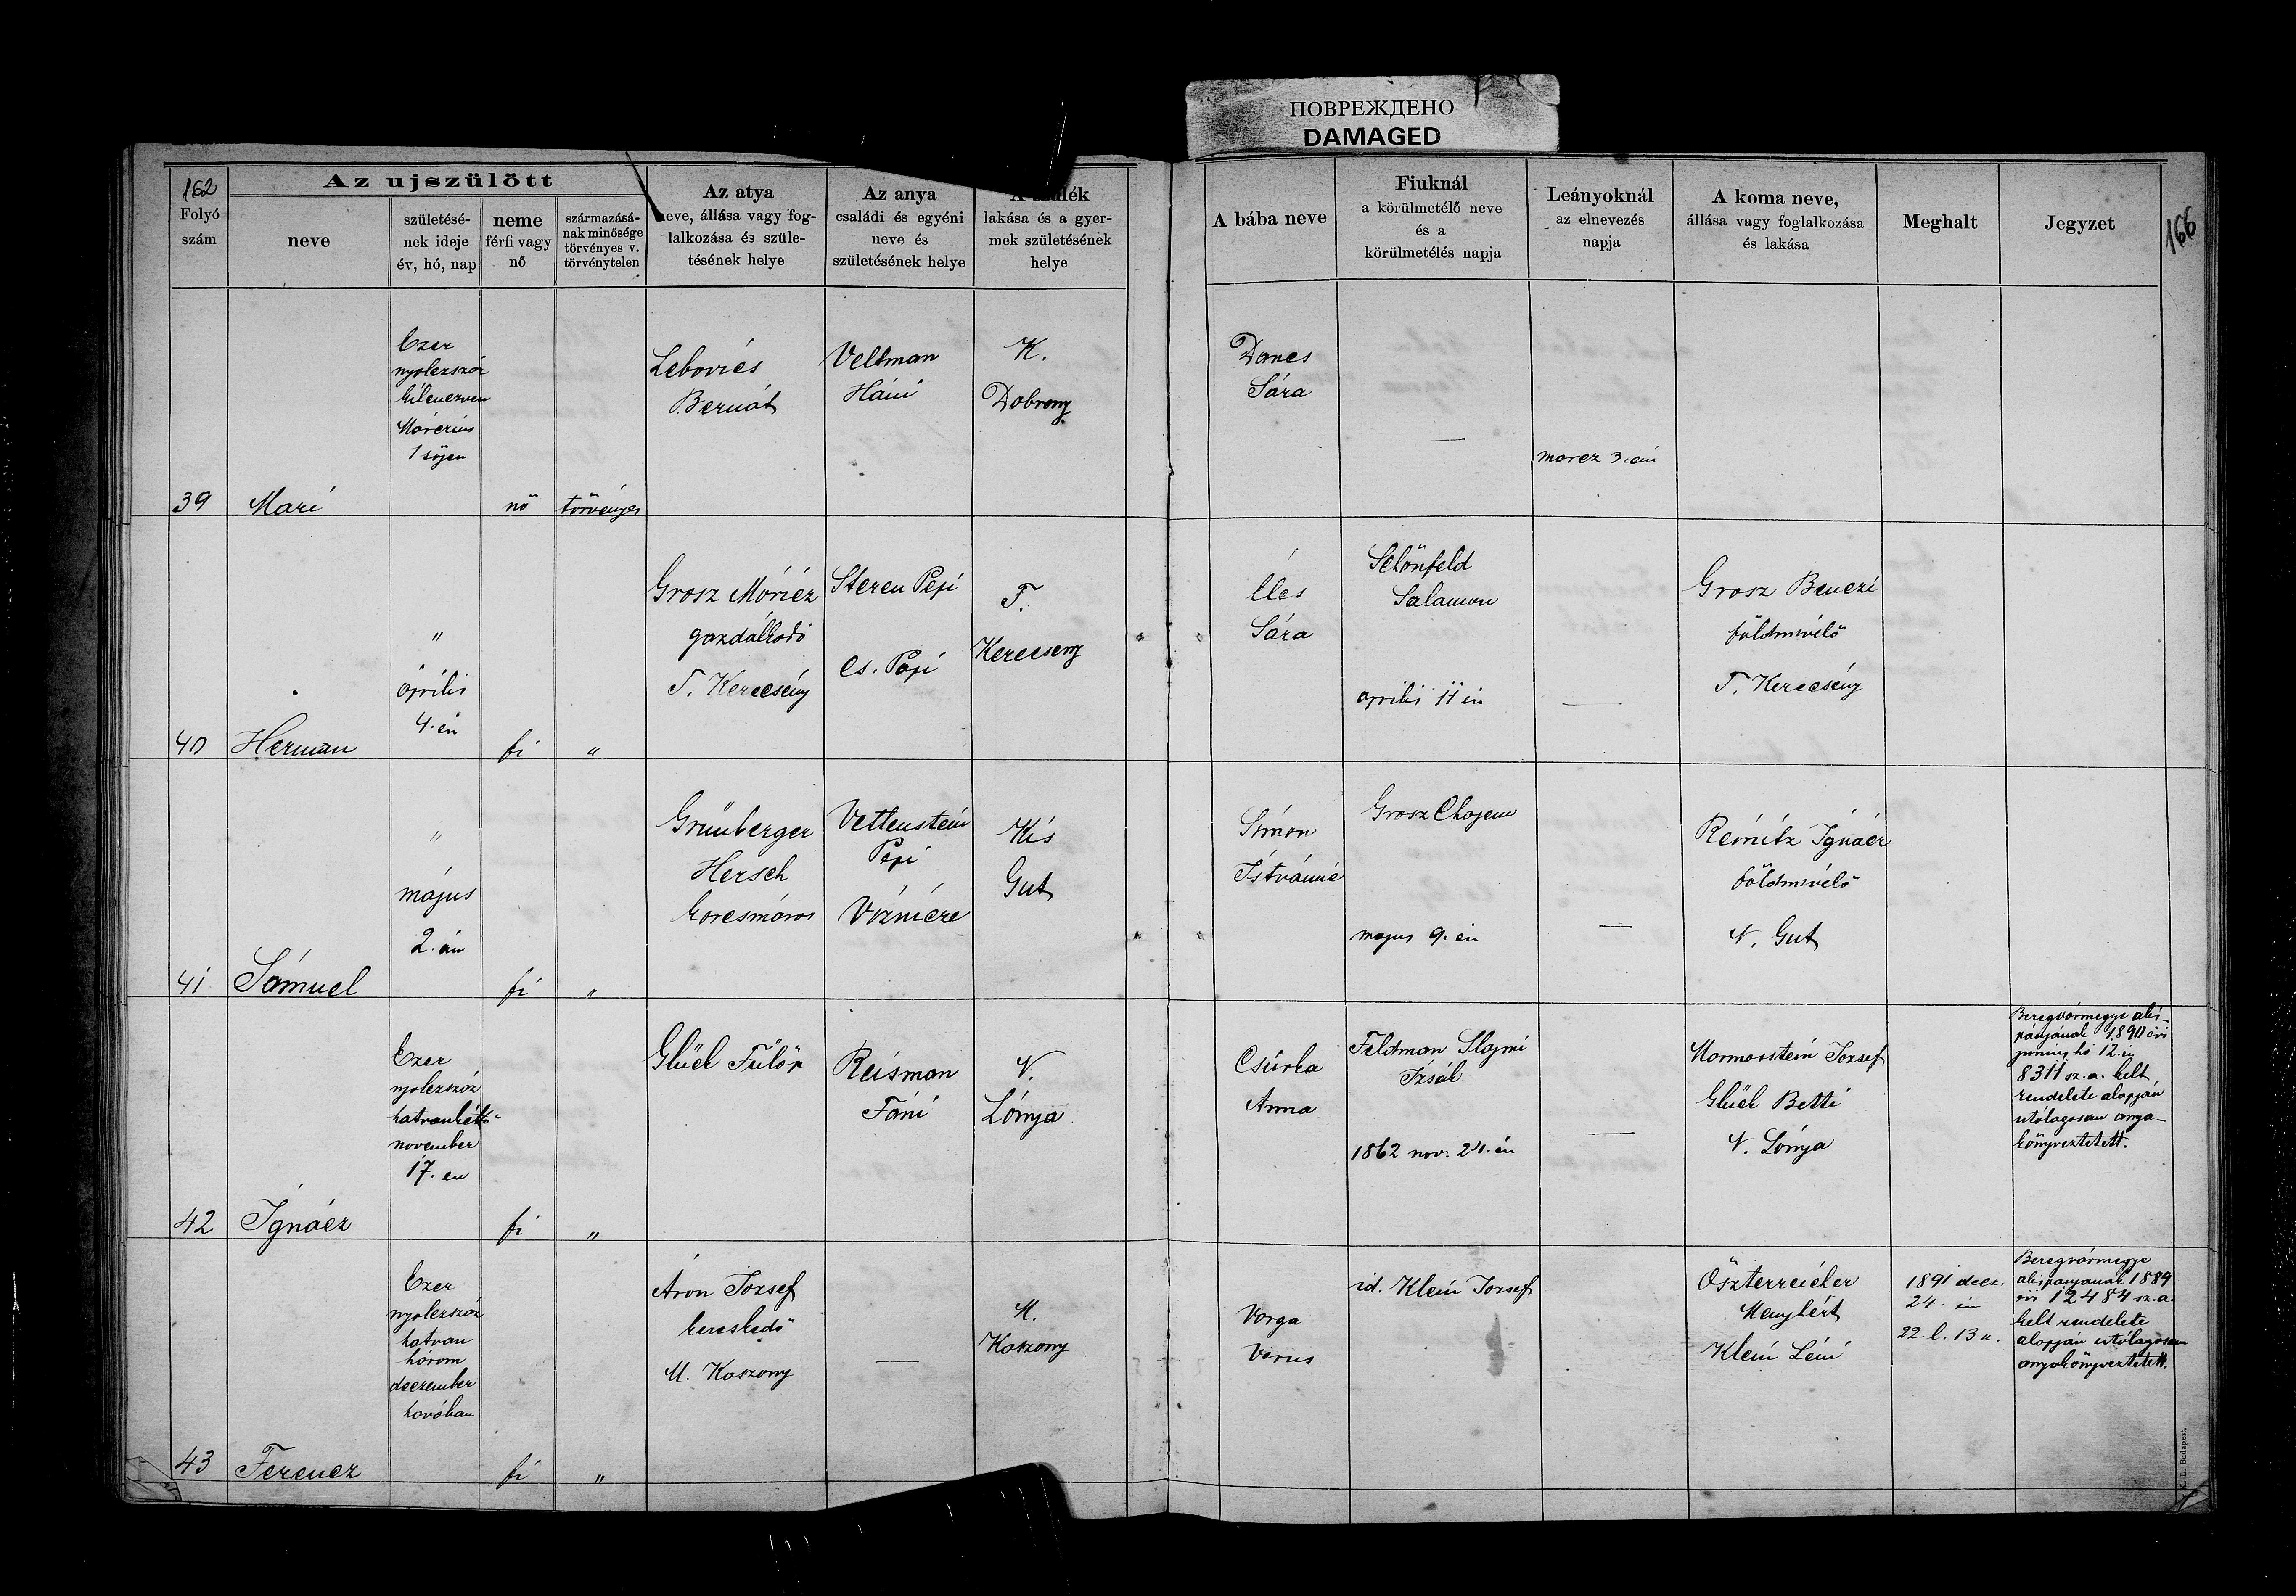 ПОВРЕЖДЕНО
DAMAGED
162
Folyó
szám
Az ujszülött
neve
születésé-
nek ideje
év, hó, nap
neme
férfi vagy
nő
származásá-
nak minősége
törvényes v.
törvénytelen
Az atya
neve, állása vagy fog-
lalkozása és szüle-
tésének helye
Az anya
családi és egyéni
neve és
születésének helye
A szülék
lakása és a gyer-
mek születésének
helye
A bába neve
Fiuknál
a körülmetélő neve
és a
körülmetélés napja
Leányoknál
az elnevezés
napja
A koma neve,
állása vagy foglalkozása
és lakása
Meghalt
Jegyzet
166
39
Mari
Ezer
nyolczszáz
kilenczven
Márczius
1 söjen
nő
törvényes
Lebovics
Bernát
Veltman
Háni
K.
Dobrony
Dancs
Sára
—
marcz 3. án
40
Herman
"
április
4. én
fi
"
Grosz Móricz
gazdálkodó
T. Kerecsény
Steren Pepi
Cs. Papi
T.
Kerecseny
Éles
Sára
Schönfeld
Salamon
április 11 én
—
Grosz Benczi
földmivelő
T. Kerecsény
41
Sámuel
"
május
2. án
fi
"
Grünberger
Hersch
korcsmáros
Vettenstein
Pepi
Vízmicze
Kis
Gut
Simon
Istvánné
Grosz Chajem
majus 9. én
—
Reinitz Ignácz
földmivelő
N. Gut
42
Ignácz
Ezer
nyolczszáz
hatvankettő
november
17. en
fi
"
Glück Fülöp
Reisman
Fáni
N.
Lónya
Csúrka
Anna
Feldman Slojmi
Izsák
1862 nov. 24. én
—
Marmorstein Jozsef
Glück Betti
N. Lónya
Beregvármegye alis-
pánjának 1890 évi
junius hó 12. én
8311 sz. a. kelt
rendelete alapján
utólagosan anya-
könyveztetett.
43
Ferencz
Ezer
nyolczszáz
hatvan
három
deczember
havában
fi
"
Áron Jozsef
kereskedő
M. Kaszony
—
M.
Kaszony
Varga
Verus
id. Klein Jozsef
Öszterreicher
Menyhért
Klein Léni
1891 decz.
24. én
22. l. 13 sz.
Beregvármegye
alispánjának 1889
évi 12484 sz. a.
kelt rendelete
alapján utólagosan
anyakönyveztetett.
K. L. Budapest.